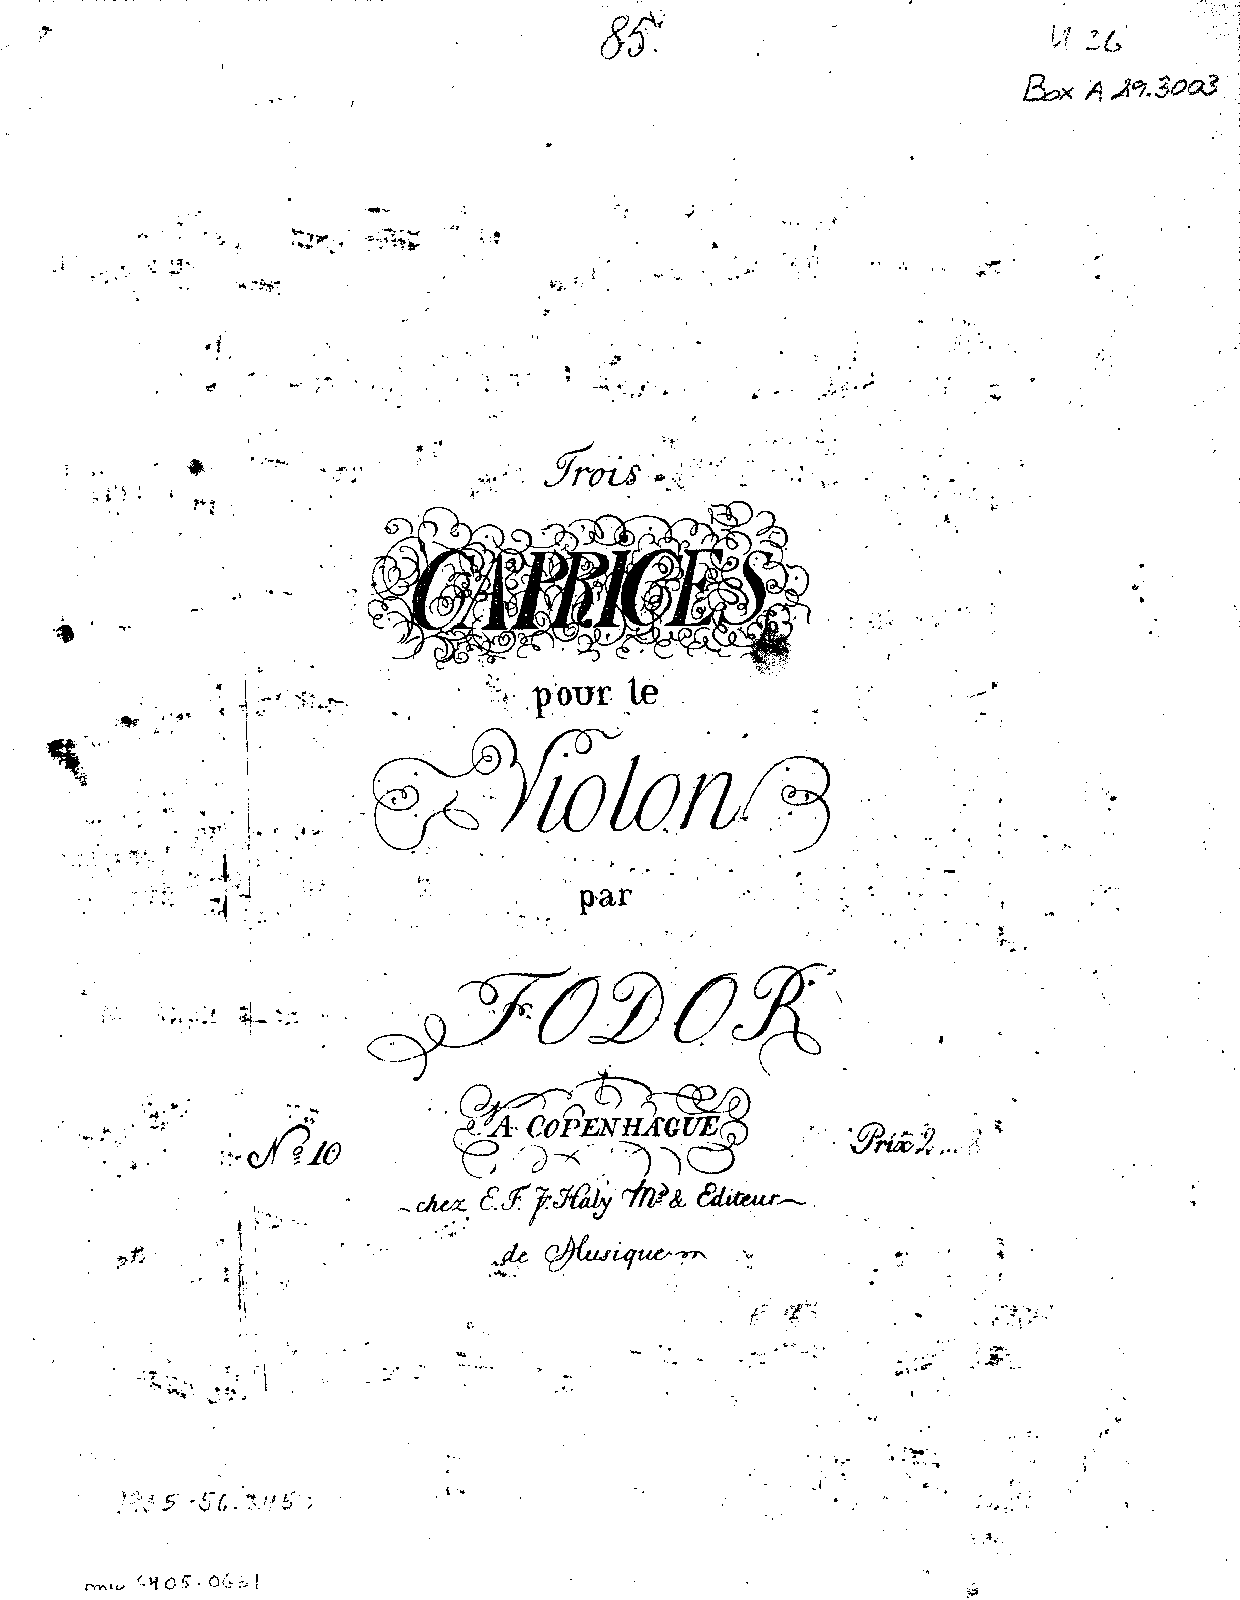 85.
U 26
Box A 29.3003
Trois
CAPRICES
pour le
Violon
par
FODOR
A COPENHAGUE
No 10
Prix 2
chez E. F. J. Haly Md & Editeur
de Musique
1955-56.345